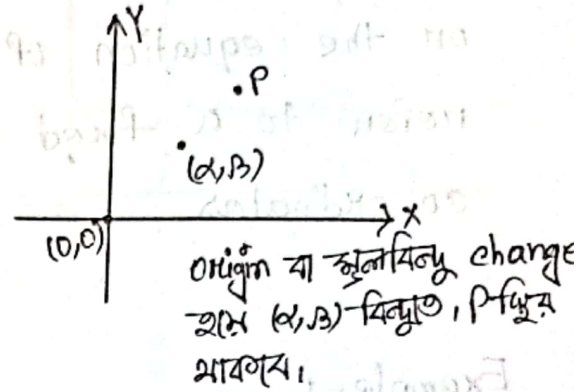 Y
P
(α,β)
X
(0,0)
origin বা মূলবিন্দু change
হয়ে (α,β)-বিন্দুতে, P স্থির
থাকবে।